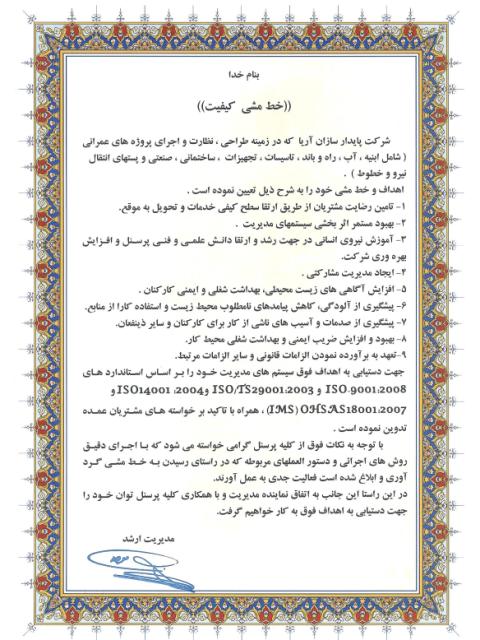 بنام خدا
((خط مشی کیفیت))
شرکت پایدار سازان آریا که در زمینه طراحی ، نظارت و اجرای پروژه های عمرانی
( شامل ابنیه ، آب ، راه و باند ، تاسیسات ، تجهیزات ، ساختمانی ، صنعتی و پستهای انتقال
نیرو و خطوط ) .
اهداف و خط مشی خود را به شرح ذیل تعیین نموده است .
۱- تامین رضایت مشتریان از طریق ارتقا سطح کیفی خدمات و تحویل به موقع.
۲- بهبود مستمر اثر بخشی سیستمهای مدیریت .
۳- آموزش نیروی انسانی در جهت رشد و ارتقا دانش علمـی و فنـی پرسـنل و افـزایش
بهره وری شرکت.
۴- ایجاد مدیریت مشارکتی .
۵- افزایش آگاهی های زیست محیطی، بهداشت شغلی و ایمنی کارکنان .
۶- پیشگیری از آلودگی، کاهش پیامدهای نامطلوب محیط زیست و استفاده کارا از منابع.
۷- پیشگیری از صدمات و آسیب های ناشی از کار برای کارکنان و سایر ذینفعان.
۸- بهبود و افزایش ضریب ایمنی و بهداشت شغلی محیط کار.
۹-تعهد به برآورده نمودن الزامات قانونی و سایر الزامات مرتبط.
جهت دستیابی به اهداف فوق سیستم های مدیریت خـود را بـر اسـاس اسـتاندارد هـای
ISO-9001:2008 و ISO/TS29001:2003 و ISO14001 :2004 و
OHSAS18001:2007 (IMS) ، همراه با تاکید بر خواسته هـای مشـتریان عمـده
تدوین نموده است .
با توجه به نکات فوق از کلیه پرسنل گرامی خواسته می شود که بـا اجـرای دقیـق
روش های اجرائی و دستور العملهای مربوطه که در راستای رسیدن بـه خـط مشـی گـرد
آوری و ابلاغ شده است فعالیت جدی به عمل آورند.
در این راستا این جانب به اتفاق نماینده مدیریت و با همکاری کلیه پرسنل توان خـود را
جهت دستیابی به اهداف فوق به کار خواهیم گرفت.
مدیریت ارشد